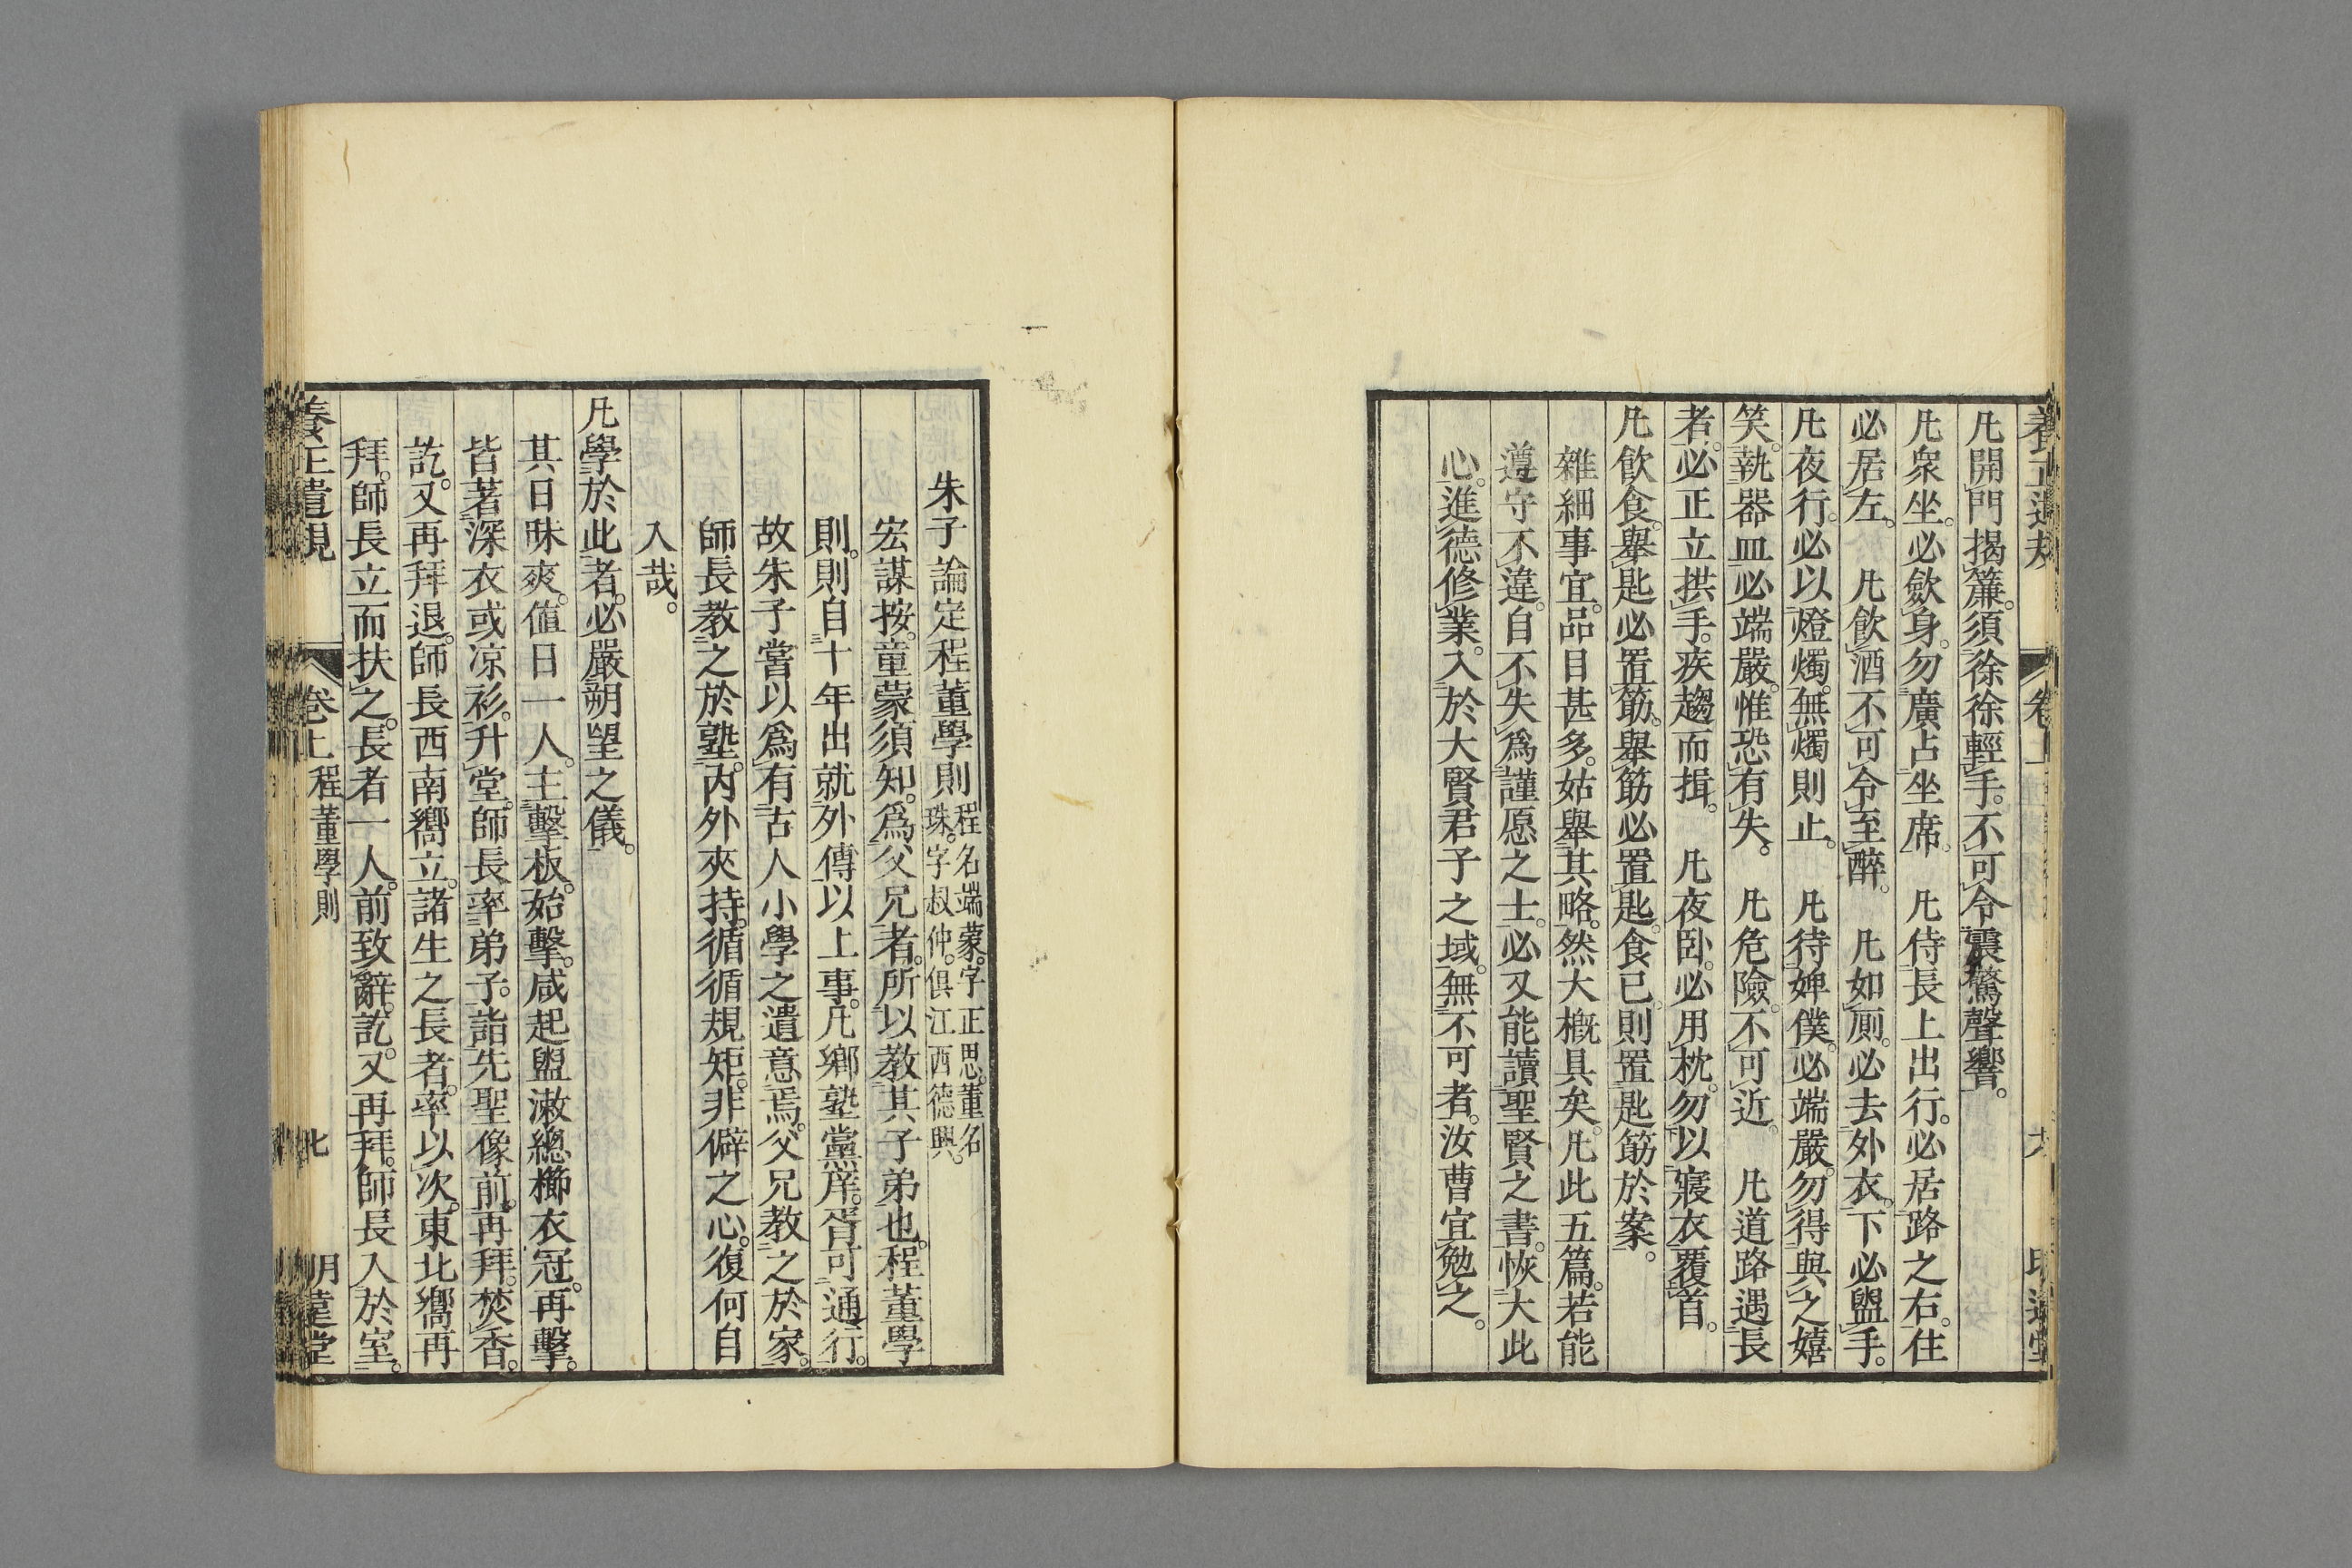 養正遺規 卷上 六
凡開門揭簾。須徐徐輕手。不可令震驚聲響。
凡衆坐。必歛身。勿廣占坐席。 凡侍長上出行。必居路之右。住
必居左。 凡飮酒不可令至醉。 凡如厠。必去外衣。下必盥手。
凡夜行。必以燈燭。無燭則止。 凡待婢僕。必端嚴。勿得與之嬉
笑。執器皿必端嚴。惟恐有失。 凡危險。不可近。 凡道路遇長
者。必正立拱手。疾趨而揖。 凡夜臥。必用枕。勿以寢衣覆首。
凡飮食。舉匙必置筯。舉筯必置匙。食已。則置匙筯於案。
雜細事宜。品目甚多。姑舉其略。然大槪具矣。凡此五篇。若能
遵守不違。自不失爲謹愿之士。必又能讀聖賢之書。恢大此
心。進德修業。入於大賢君子之域。無不可者。汝曹宜勉之。
朱子論定程董學則 程名端蒙。字正思。董名
珠。字叔仲。俱江西德興。
宏謀按。童蒙須知。爲父兄者。所以教其子弟也。程董學
則。則自十年出就外傅以上事。凡鄉塾黨庠。胥可通行。
故朱子嘗以爲有古人小學之遺意焉。父兄教之於家。
師長教之於塾。內外夾持。循循規矩。非僻之心。復何自
入哉。
凡學於此者。必嚴朔望之儀。
其日昧爽。値日一人。主擊板。始擊。咸起盥漱總櫛衣冠。再擊。
皆著深衣或凉衫。升堂。師長率弟子。詣先聖像前。再拜。焚香。
訖。又再拜退。師長西南嚮立。諸生之長者。率以次。東北嚮再
拜。師長立而扶之。長者一人。前致辭。訖。又再拜。師長入於室。
養正遺規 卷上 程董學則 七 明遠堂